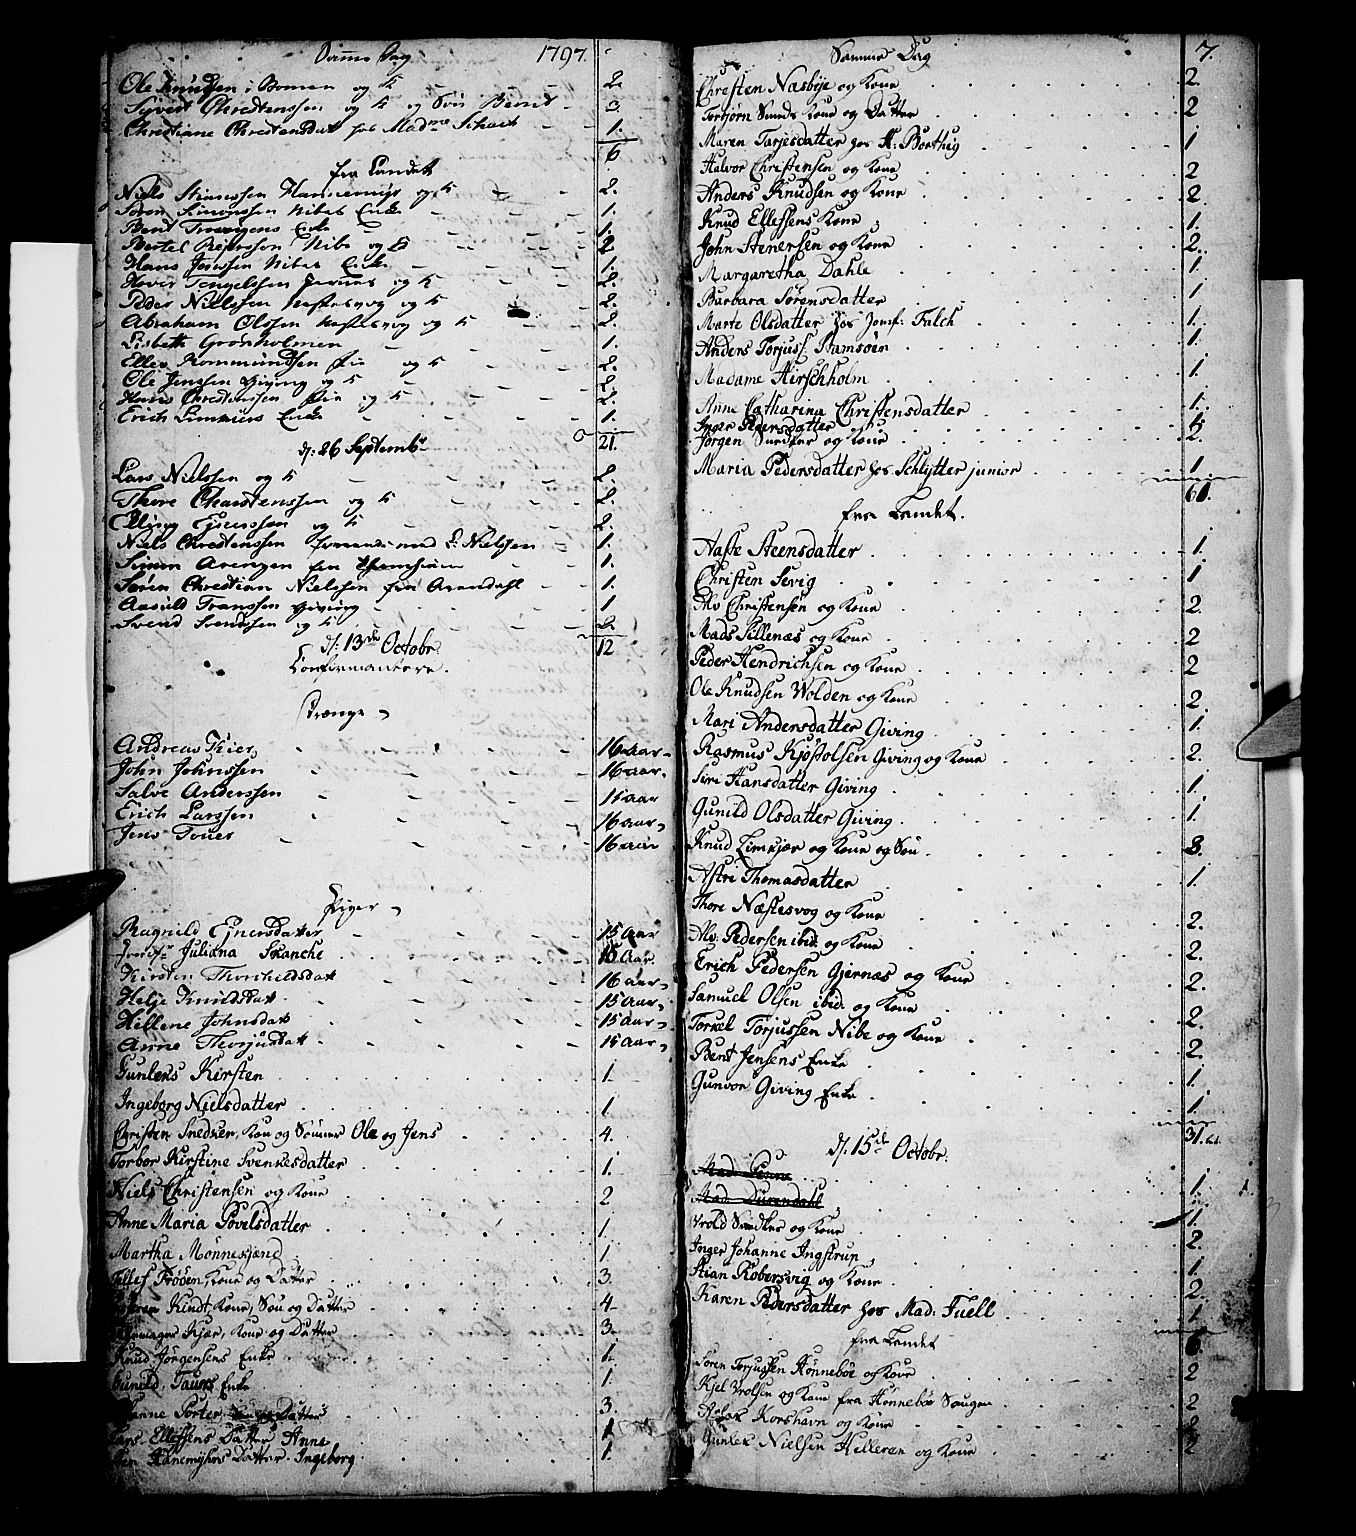 Samme Dag 1797.
Ole Knudsen i Bomen og K 2.
Sÿvert Chrestenssen og K og Søn Bernt 3.
Christiane Chrestensdat hos Madme Schach 1.
6
fra Landet
Niels Simenssen Hannemyr og K 2.
Søren Simonssen Nibes Enke 1.
Bent Enke 1.
Bertel Nibe og K 2
Hans Jenssen Nibes Enke 1.
og K 2.
Peder Nielssen Næstesvog og K 2.
Abraham Olssen Næstesvog og K 2.
Lisbeth Grønholmen 1.
Ellev Rommundssen og K 2.
Ole Jenssen Giving og K 2.
Hans Chrestenssen og K 2.
Erich Enke 1.
21.
d: 26 Septembr
Lars Nielssen og K 2.
Thore Charstenssen og K 2.
Elling Ejnerssen og K 2.
Niels Chrestenssen med L: Nielssen 1.
Simon 1.
Søren Chrestian Nielssen fra Arendahl 1.
Aasuld Franssen Giving 1
Svend Svendssen og K 2.
12
d: 13de Octobr.
Confirmantere.
Drænge
Andreas Kier 16 aar
John Johnssen 16 aar.
Salve Anderssen 15 aar
Erich Larssen 16 aar
Jens 16 aar
Piger
Ragnild Ejnersdatter 15 aar
Juliana Skanche 15 Aar.
Kirsten Thorkeldsdatt 16 aar
Helje Knudsdat 15 aar
Hellene Johnsdat 15 aar
Anne Thorjusdatt 15 aar
Gunlefs Kirsten 1.
Ingeborg Nielsdatter 1.
Christen Snedker, Kone og Sønner Ole og Jens 4.
Torbor Kirstine Svenkesdatter 1.
Niels Christensen og Kone 2
Anne Maria Povelsdatter 1.
Martha Mønnesjand 1
Tellef Frøen, Kone og Datter 3.
Kindt, Kone, Søn og Datter 4
Kjær, Kone og Datter 3.
Knud Jørgensens Enke 1.
Gunild Taurs Enke 1.
Porter Datter 3.
Lars Ellefsens Datter Anne 1
Hanemyhrs Datter Ingeborg 1.
Samme Dag 7.
Christen Næsbye og Kone 2.
Torbjørn Smeds Kone og Datter 2
Maren Tarjesdatter hos H: Borthig 1
Halvor Christensen og Kone 2
Anders Knudsen og Kone 2.
Knud Ellefsens Kone 1.
John Stenersen og Kone 2.
Margaretha Dahle 1.
Barbara Sørensdatter 1.
Marte Olsdatter hos Jomf: Falch 1.
Anders Torjuss Stamsøen 1.
Madame Hirschholm 1.
Anne Catharina Christensdatter 1.
Inger Pedersdatter 1.
Jørgen Snedker og Kone 2.
Maria Pedersdatter hos Schlytter junior 1.
61.
fra Landet.
Aaste Steensdatter 1.
Christen Sevig 1
Alv Christensen og Kone 2.
Mads Sillenæs og Kone 2
Peder Hendrichsen og Kone 2
Ole Knudsen Wolden og Kone 2.
Mari Andersdatter Giving 1.
Rasmus Kjøstolsen Giving og Kone 2.
Siri Hansdatter Giving 1.
Gunild Olsdatter Giving 1.
Knud Limkjær og Kone og Søn 3.
Astri Thomasdatter 1.
Thore Næstesvog og Kone 2.
Alv: Pedersen ibid: og Kone 2.
Erich Pedersen Gjernæs og Kone 2.
Samuel Olsen ibid: og Kone 2.
Torkel Torjussen Nibe og Kone 2.
Bent Jensens Enke 1.
Gunvor Giving Enke 1.
31.
d: 15de Octobr:
Mad: 1.
Mad: Durendahl 1.
Vrold Snedker og Kone 2.
Inger Johanne Ingstrup 1.
Stian Robersvig og Kone 2.
Karen Pedersdatter hos Mad: Fuell 1.
6.
fra Landet
Søren Torjussen Hønnebøe og Kone 2
Kjel Vrolsen og Kone fra Hønnebøe Sougn 2
Korshavn og Kone 2
Gunlex Nielsen Helleren og Kone 2